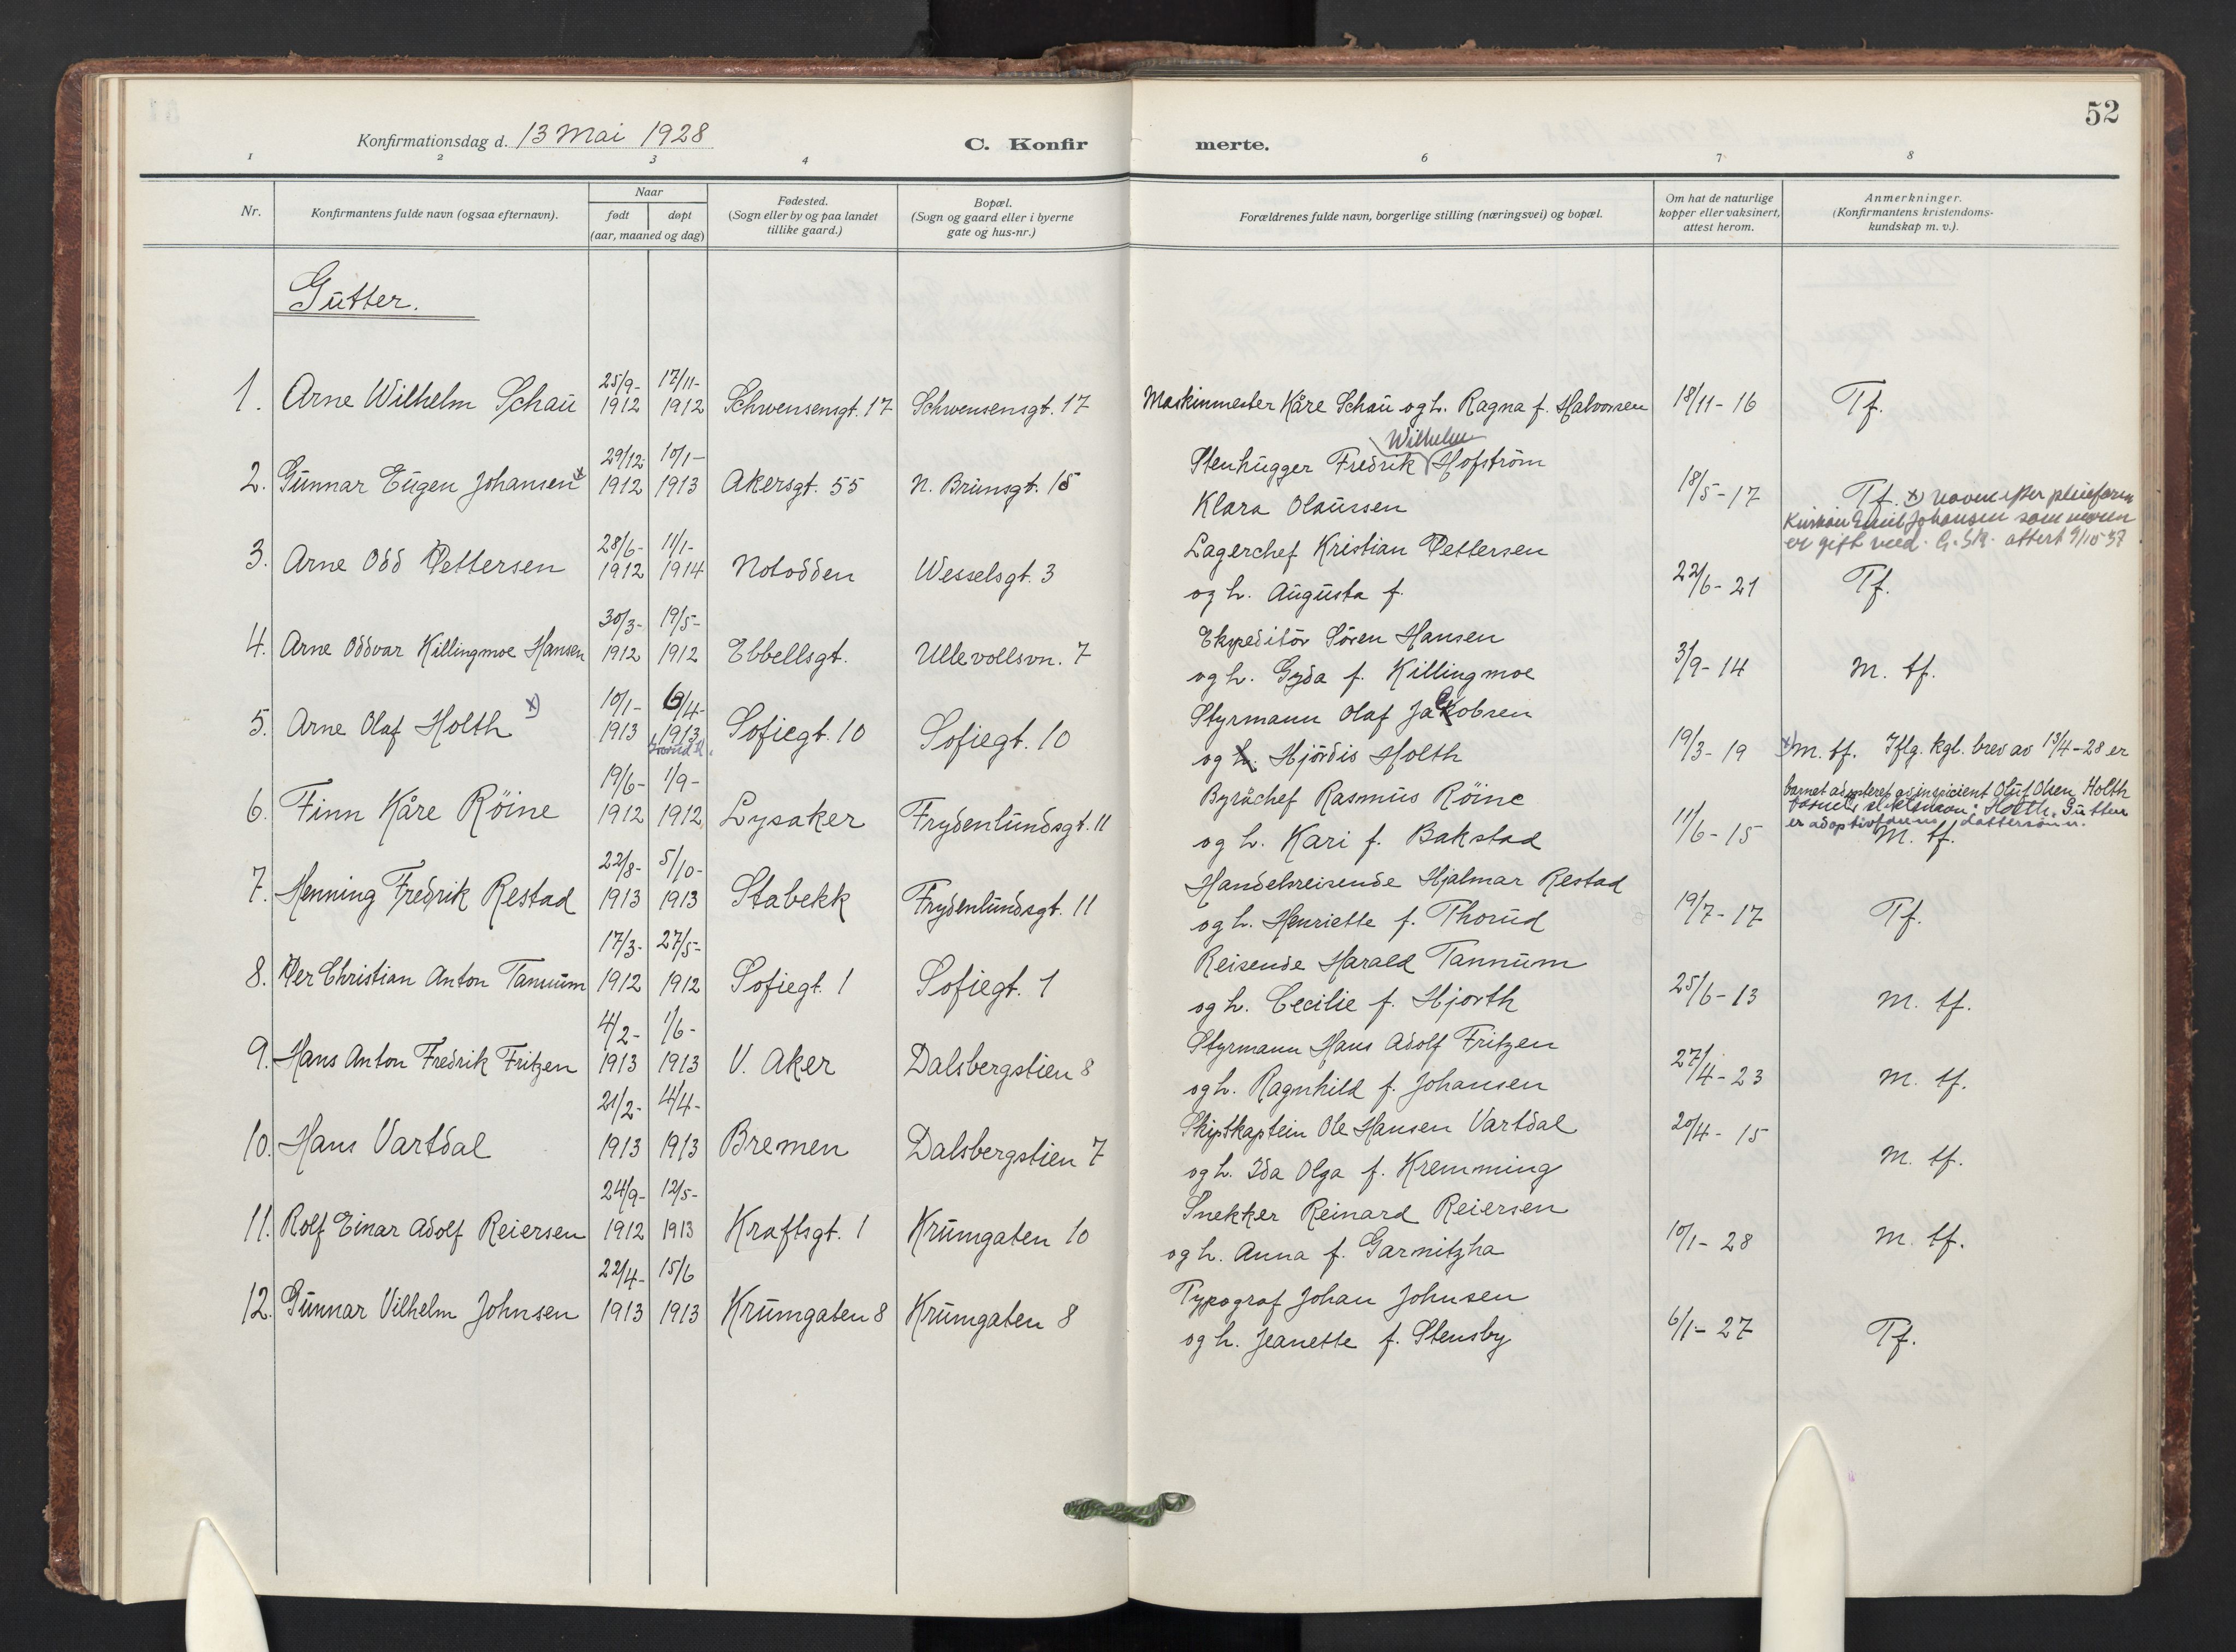 52
Konfirmationsdag d. 13 Mai 1928
C. Konfirmerte.
1 2 3 4 6 7 8
Nr.
Konfirmantens fulde navn (ogsaa efternavn).
Naar
født døpt
(aar, maaned og dag)
Fødested.
(Sogn eller by og paa landet
tillike gaard.)
Bopæl.
(Sogn og gaard eller i byerne
gate og hus-nr.)
Forældrenes fulde navn, borgerlige stilling (næringsvei) og bopæl.
Om hat de naturlige
kopper eller vaksinert,
attest herom.
Anmerkninger.
(Konfirmantens kristendoms-
kundskap m. v.).
Gutter.
25/9- 17/11-
1. Arne Wilhelm Schau 1912 1912 Schwensensgt. 17 Schwensensgt. 17 Maskinmester Kåre Schau og h. Ragna f. Halvorsen 18/11-16 Tf.
Wilhelm
29/12- 10/1- Stenhugger Fredrik Hofström
2. Gunnar Eugen Johansen x 1912 1913 Akersgt. 55 N. Brunsgt. 15 18/5-17 Tf. x) navn efter pleiefaren
Klara Olaussen
Emil Johansen som moren
er gift med. attest 9/10 37
28/6- 11/1- Lagerchef Kristian Pettersen
3. Arne Odd Pettersen 1912 1914 Notodden Wesselsgt. 3 22/6-21 Tf.
og h. Augusta f.
30/3- 19/5- Ekspeditör Sören Hansen
4. Arne Oddvar Killingmoe Hansen 1912 1912 Ebbellsgt. Ullevollsvn. 7 3/9-14 M. tf.
og h. Gyda f. Killingmoe
10/1- 6/4- Styrmann Olaf Jacobsen
5. Arne Olaf Holth x) 1913 1913 Sofiegt. 10 Sofiegt. 10 19/3-19 x) M. tf. Iflg. kgl. brev av 13/4-28 er
og h. Hjördis Holth
barnet adopteret av inspicient Oluf Olsen Holth
Barnets slektsnavn: Holth. Gutten
er adoptivfarens dattersönn.
19/6- 1/9- Byråchef Rasmus Röine
6. Finn Kåre Röine 1912 1912 Lysaker Frydenlundsgt. 11 11/6-15 M. tf.
og h. Kari f. Bakstad
22/8- 5/10- Handelsreisende Hjalmar Restad
7. Henning Fredrik Restad 1913 1913 Stabekk Frydenlundsgt. 11 19/7-17 Tf.
og h. Henriette f. Thorud
17/3- 27/5- Reisende Harald Tannum
8. Per Christian Anton Tannum 1912 1912 Sofiegt. 1 Sofiegt. 1 25/6-13 M. tf.
og h. Cecilie f. Hjorth
4/2- 1/6- Styrmann Hans Adolf Fritzen
9. Hans Anton Fredrik Fritzen 1913 1913 V. Aker Dalsbergstien 8 27/4-23 M. tf.
og h. Ragnhild f. Johansen
21/2- 4/4- Skipskaptein Ole Hansen Vartdal
10. Hans Vartdal 1913 1913 Bremen Dalsbergstien 7 20/4-15 M. tf.
og h. Ida Olga f. Kremming
24/9- 12/5- Snekker Reinard Reiersen
11. Rolf Einar Adolf Reiersen 1912 1913 Kraftsgt. 1 Krumgaten 10 10/1-28 M. tf.
og h. Anna f. Garnitzha
22/4- 15/6 Typograf Johan Johnsen
12. Gunnar Vilhelm Johnsen 1913 1913 Krumgaten 8 Krumgaten 8 6/1-27 Tf.
og h. Jeanette f. Stensby